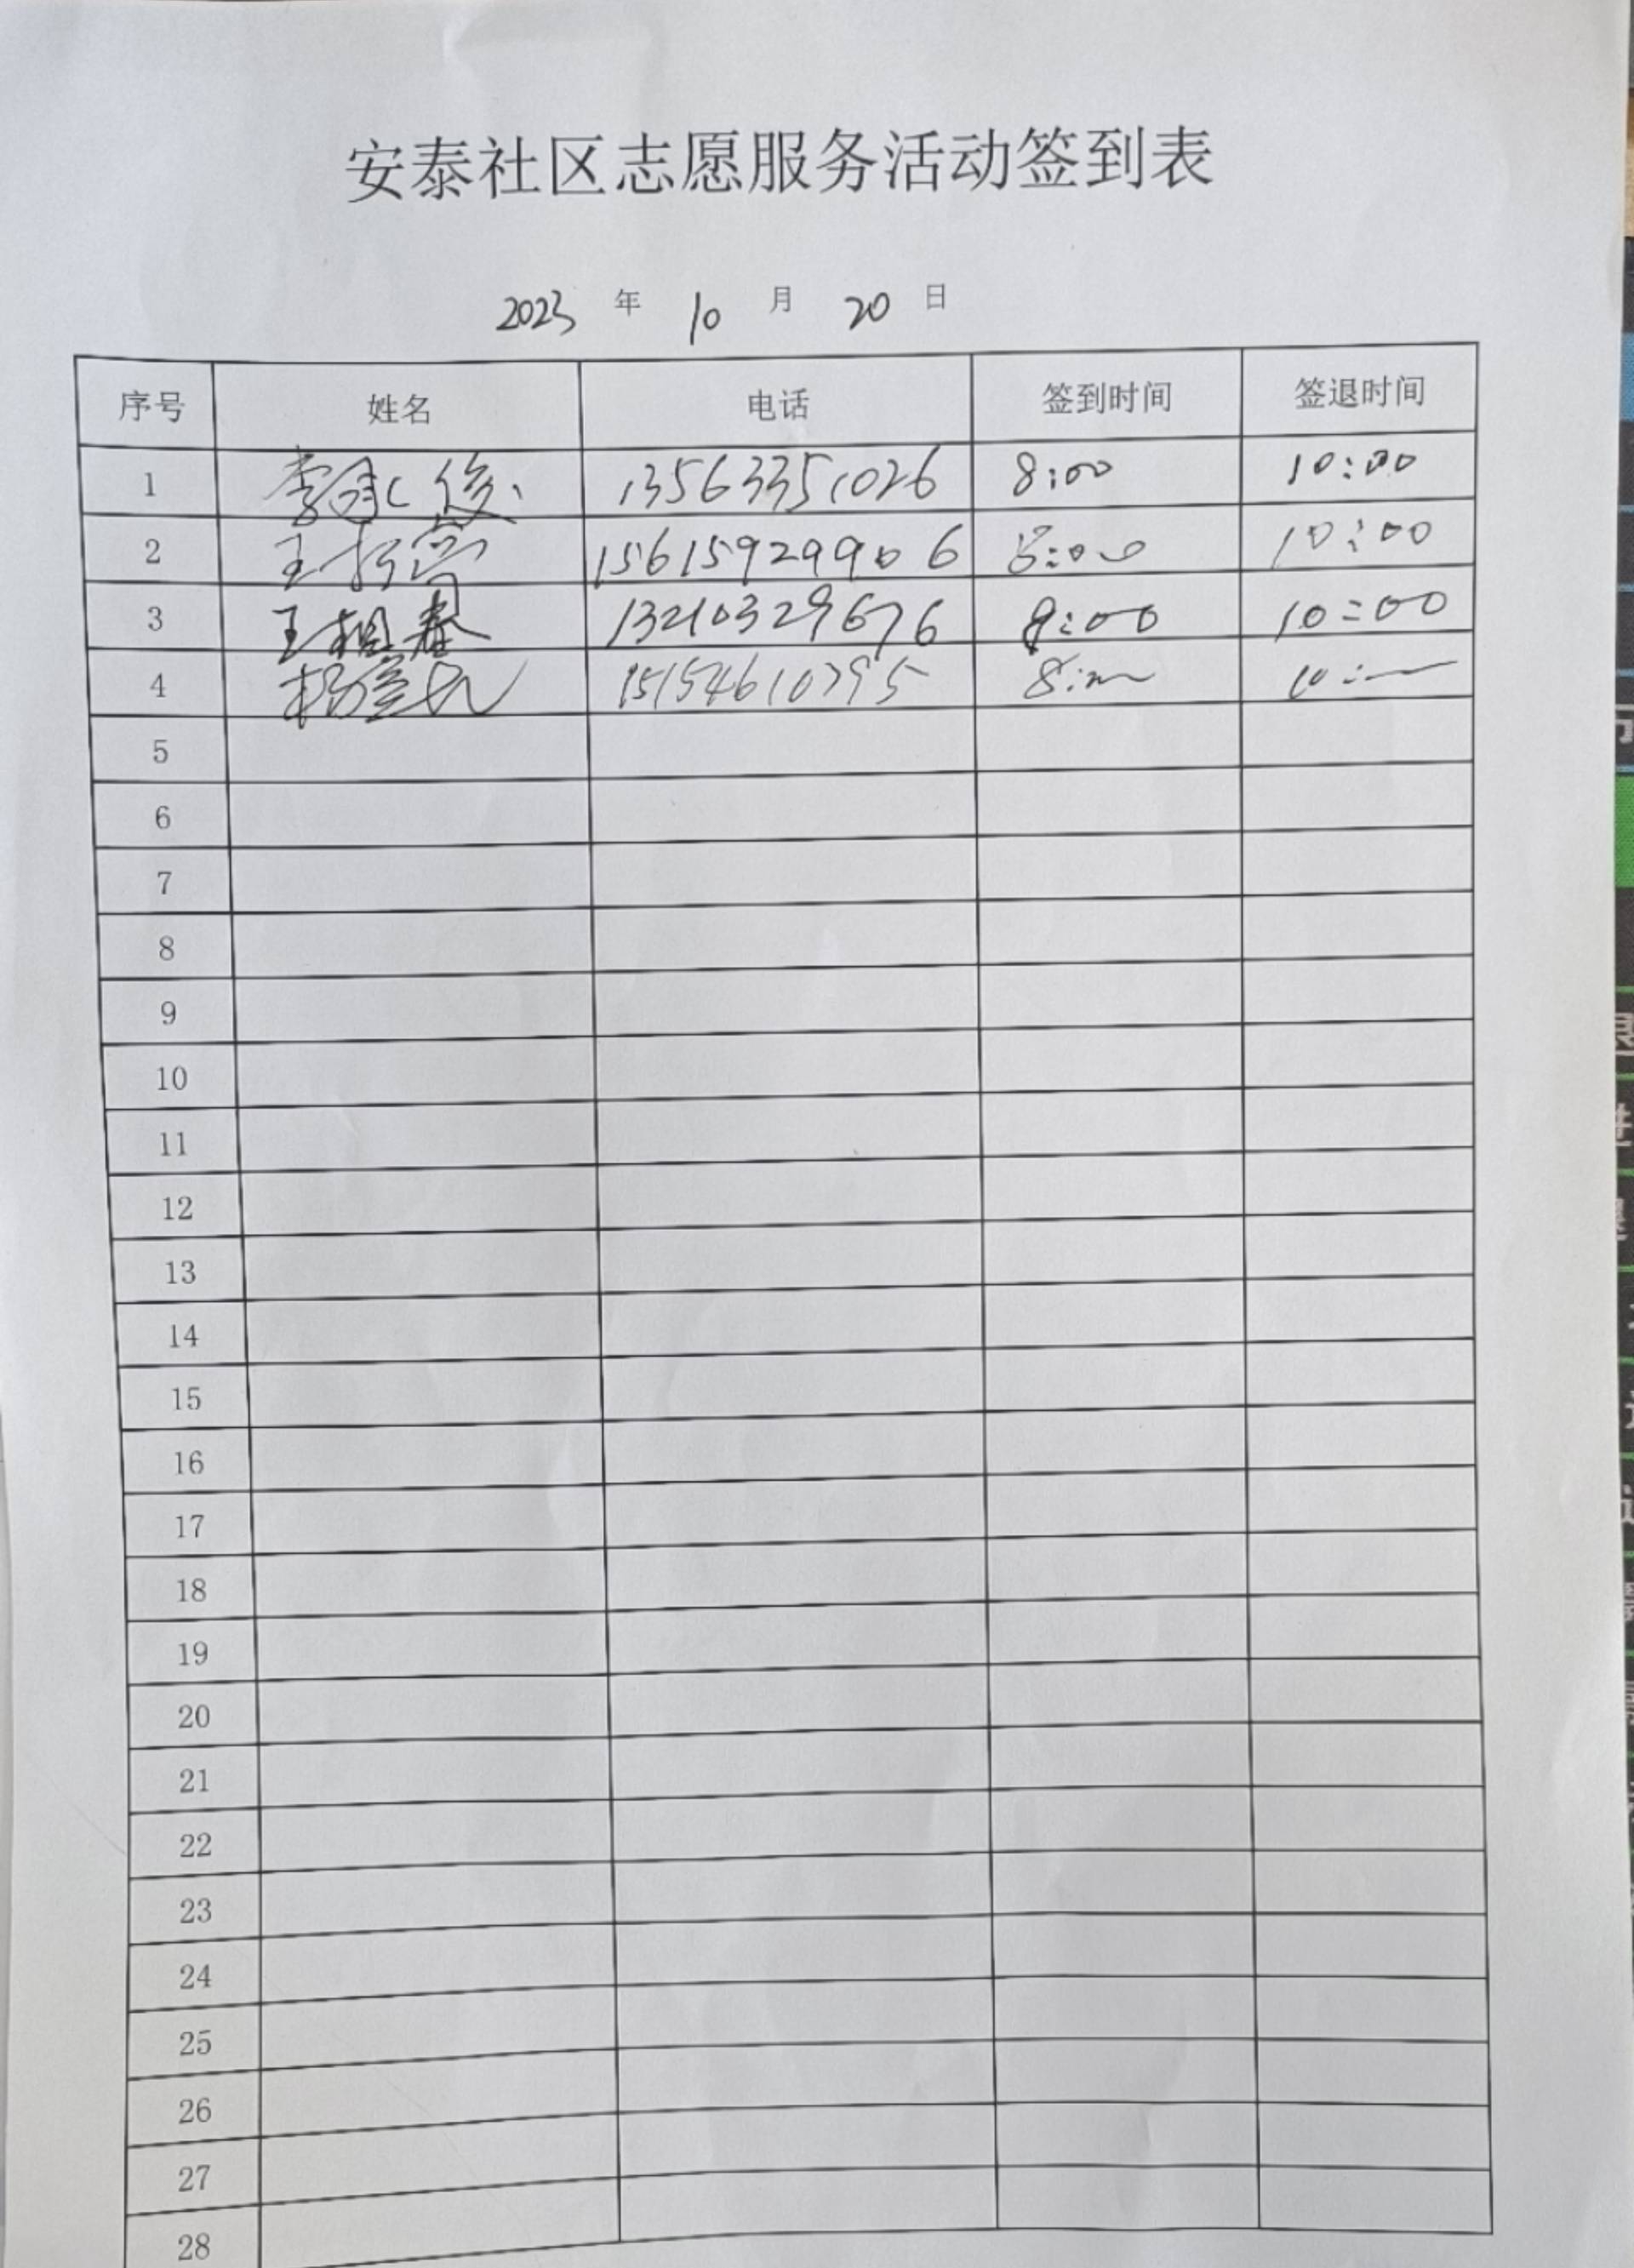 安泰社区志愿服务活动签到表
2023 年 10 月 20 日
序号 姓名 电话 签到时间 签退时间
1 13563351026 8:00 10:00
2 15615929906 8:00 10:00
3 王相春 13210329676 8:00 10:00
4 15154610795 8: 10:
5
6
7
8
9
10
11
12
13
14
15
16
17
18
19
20
21
22
23
24
25
26
27
28